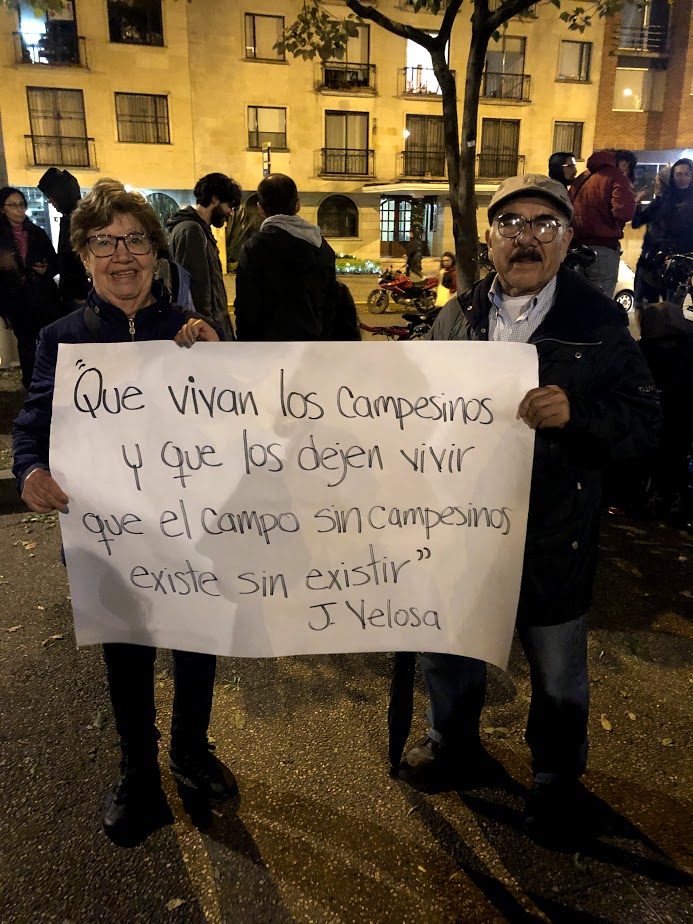 "Que vivan los campesinos
y que los dejen vivir
que el campo sin campesinos
existe sin existir"
J. Velosa